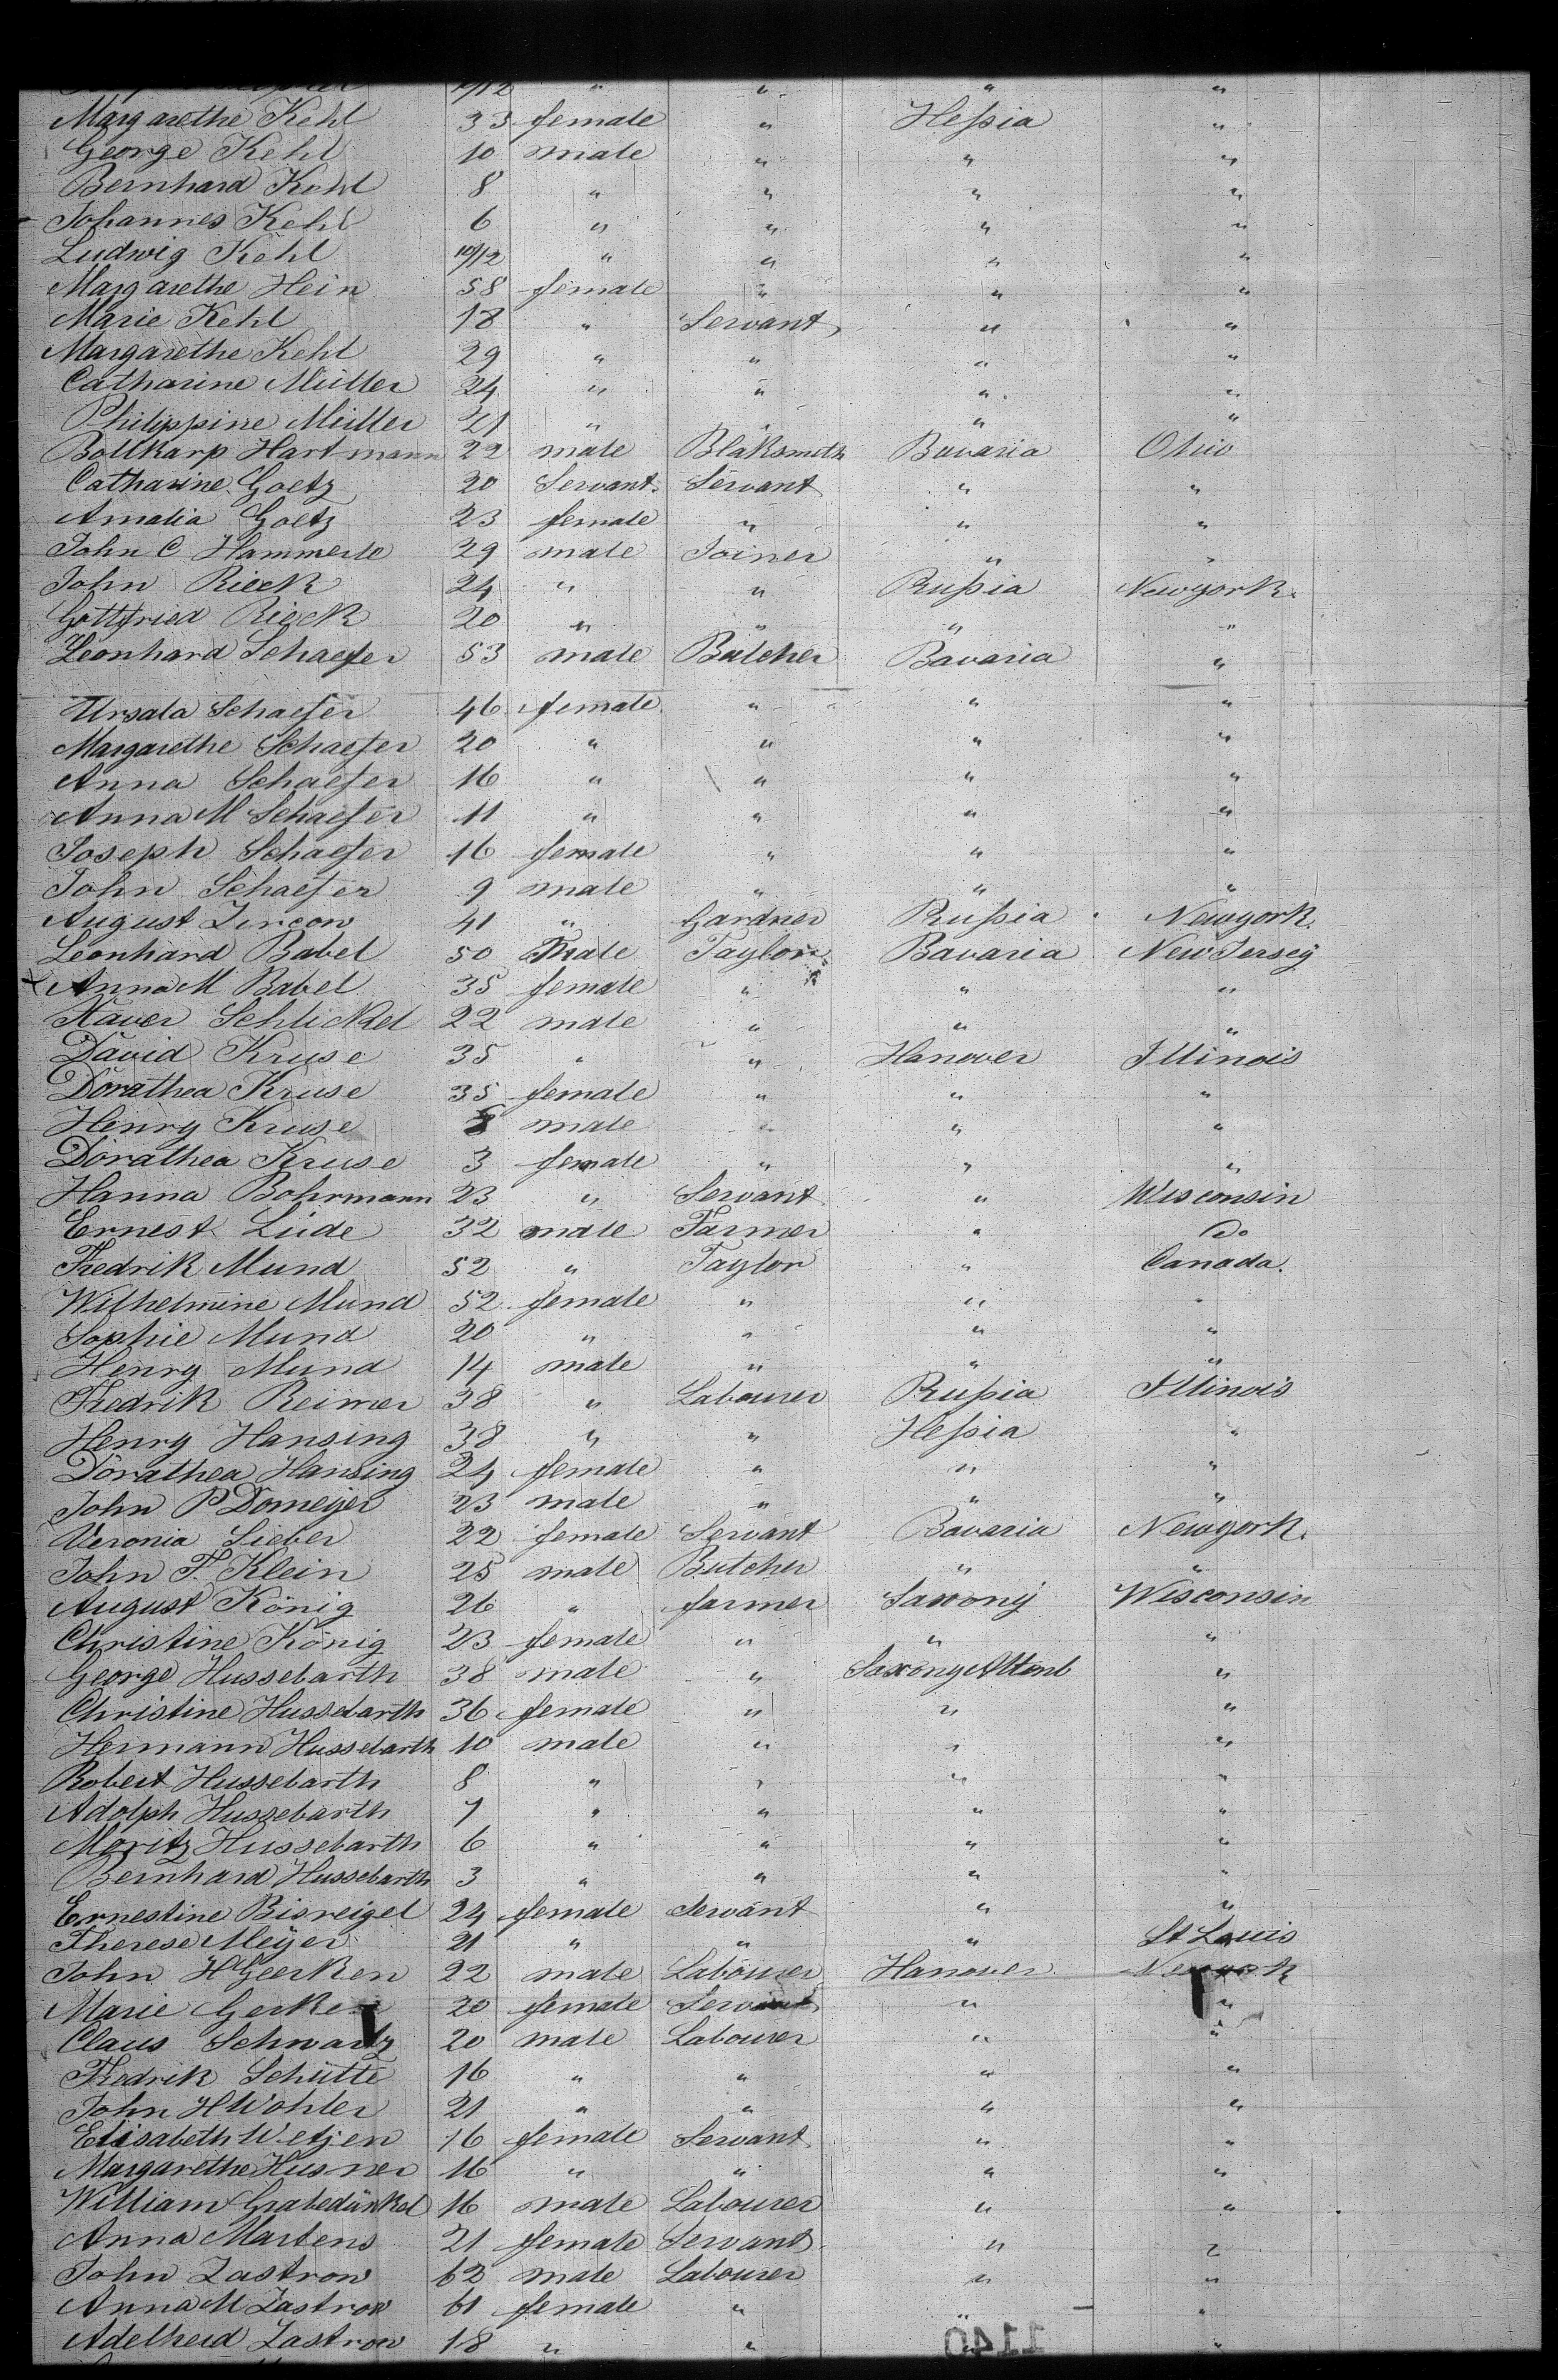 10/12 " " " "
Margarethe Kehl 33 female " Heſsia "
George Kehl 10 male " " "
Bernhard Kehl 8 " " " "
Johannes Kehl 6 " " " "
Ludwig Kehl 10/12 " " " "
Margarethe Hein 58 female " " "
Marie Kehl 18 " Servant " "
Margarethe Kehl 29 " " " "
Catharine Müller 24 " " " "
Philippine Müller 21 " " " "
Bollkarp Hartmann 22 male Blaksmith Bavaria Ohio
Catharine Goetz 20 Servant Servant " "
Amalia Goetz 23 female " " "
John C Hammerle 29 male Joiner " "
John Rieck 24 " " Pruſsia Newyork.
Gottfried Rieck 20 " " " "
Leonhard Schaefer 53 male Butcher Bavaria "
Ursala Schaefer 46 female " " "
Margarethe Schaefer 20 " " " "
Anna Schaefer 16 " " " "
Anna M Schaefer 11 " " " "
Joseph Schaefer 16 female " " "
John Schaefer 9 male " " "
August Zircow 41 " Gardner Pruſsia Newyork.
Leonhard Babel 50 Male Taylor Bavaria New Jersey
Anna M Babel 35 female " " "
Xaver Schlickel 22 male " " "
David Kruse 35 " " Hanover Illinois
Dorathea Kruse 35 female " " "
Henry Kruse 8 male " " "
Dorathea Kruse 3 female " " "
Hanna Bohrmann 23 " Servant " Wisconsin
Ernest Lüde 32 male Farmer " Do
Fredrik Mund 52 " Taylor " Canada.
Wilhelmine Mund 52 female " " "
Sophie Mund 20 " " " "
Henry Mund 14 male " " "
Fredrik Reimer 38 " Labourer Pruſsia Illinois
Henry Hansing 38 " " Heſsia "
Dorathea Hansing 24 female " " "
John P Domeijer 23 male " " "
Veronia Sieber 22 female Servant Bavaria Newyork.
John F. Klein 25 male Butcher " "
August König 26 " farmer Saxony Wisconsin
Christine König 23 female " " "
George Hussebarth 38 male " Saxony Altenb "
Christine Hussebarth 36 female " " "
Hermann Hussebarth 10 male " " "
Robert Hussebarth 8 " " " "
Adolph Hussebarth 7 " " " "
Moritz Hussebarth 6 " " " "
Bernhard Hussebarth 3 " " " "
Ernestine Bisreigel 24 female Servant " "
Therese Meÿer 21 " " " St Louis
John H Geerken 22 male Labourer Hanover Newyork
Marie Gerken 20 female Servant " "
Claus Schwartz 20 male Labourer " "
Fredrik Schütte 16 " " " "
John H Wohler 21 " " " "
Elisabeth Wetjen 16 female Servant " "
Margarethe Husner 16 " " " "
William Grabedünkel 16 male Labourer " "
Anna Martens 21 female Servant " "
John Zastrow 62 male Labourer " "
Anna M Zastrow 61 female " " "
Adelheid Zastrow 18 " " " "
1140